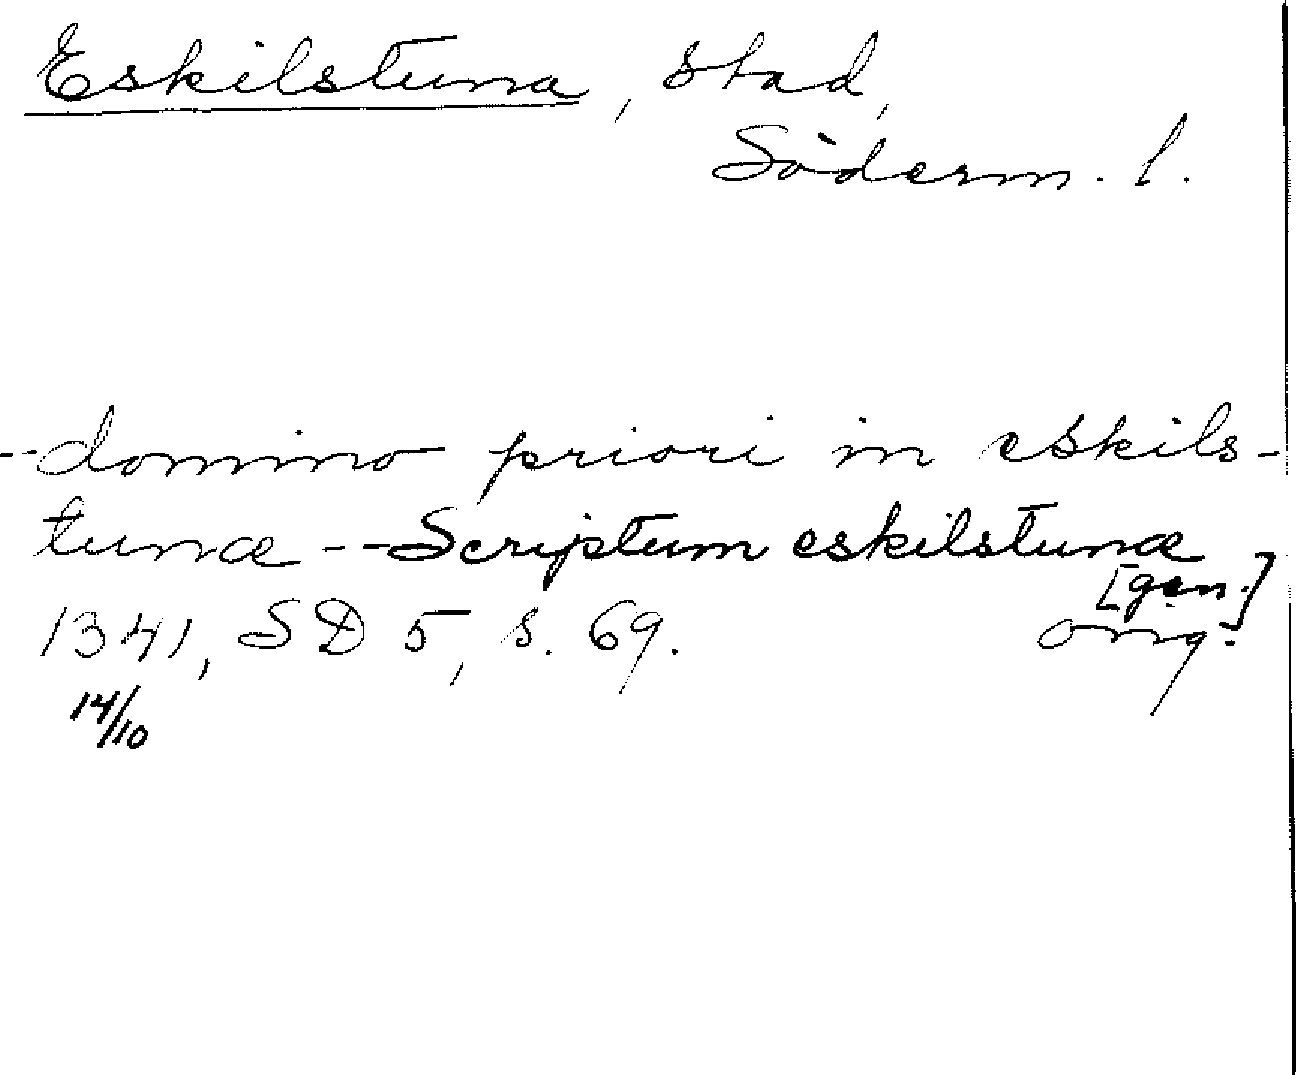 Eskilstuna, stad,
Söderm. l.
--domino priori in eskils-
tunæ -- Scriptum eskilstunæ
[gen.]
1341, SD 5, s. 69. orig.
14/10